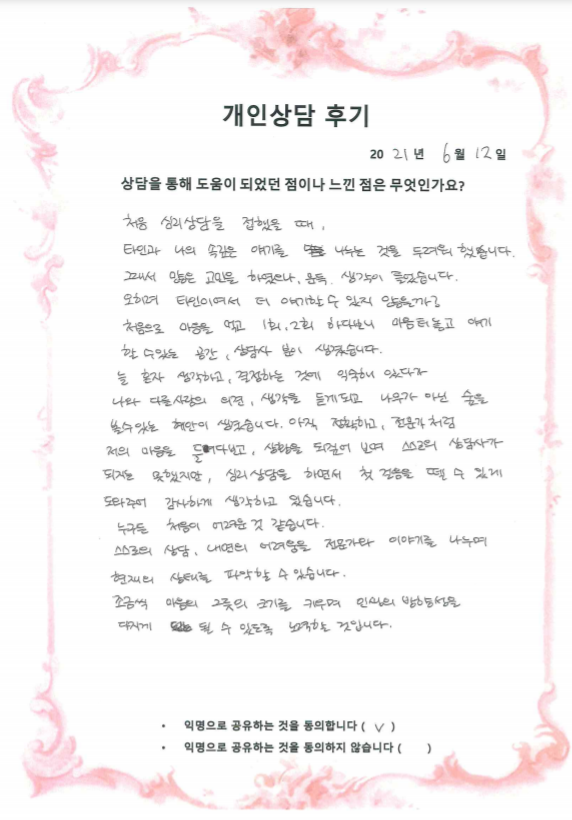 개인상담 후기
20 21 년 6 월 12 일
상담을 통해 도움이 되었던 점이나 느낀 점은 무엇인가요?
처음 심리상담을 접했을 때,
타인과 나의 속깊은 얘기를 나누는 것을 두려워 했습니다.
그래서 많은 고민을 하였으나, 문득, 생각이 들었습니다.
오히려 타인이여서 더 얘기할 수 있지 않을까?
처음으로 마음을 먹고 1회, 2회 하다보니 마음 터놓고 얘기
할 수 있는 공간, 상담사 분이 생겼습니다.
늘 혼자 생각하고, 결정하는 것에 익숙해 있다가
나와 다른사람의 의견, 생각을 듣게되고 나무가 아닌 숲을
볼 수 있는 혜안이 생겼습니다. 아직 정확하고, 전문가처럼
저의 마음을 들여다보고, 상황을 되짚어 보며 스스로의 상담사가
되지는 못했지만, 심리상담을 하면서 첫 걸음을 뗄 수 있게
도와주어 감사하게 생각하고 있습니다.
누구든 처음이 어려운 것 같습니다.
스스로의 상담, 내면의 어려움을 전문가와 이야기를 나누며
현재의 상태를 파악할 수 있습니다.
조금씩 마음의 그릇의 크기를 키우며 인생의 방향성을
다지게 될 수 있도록 노력할 것입니다.
• 익명으로 공유하는 것을 동의합니다 ( ✓ )
• 익명으로 공유하는 것을 동의하지 않습니다 ( )